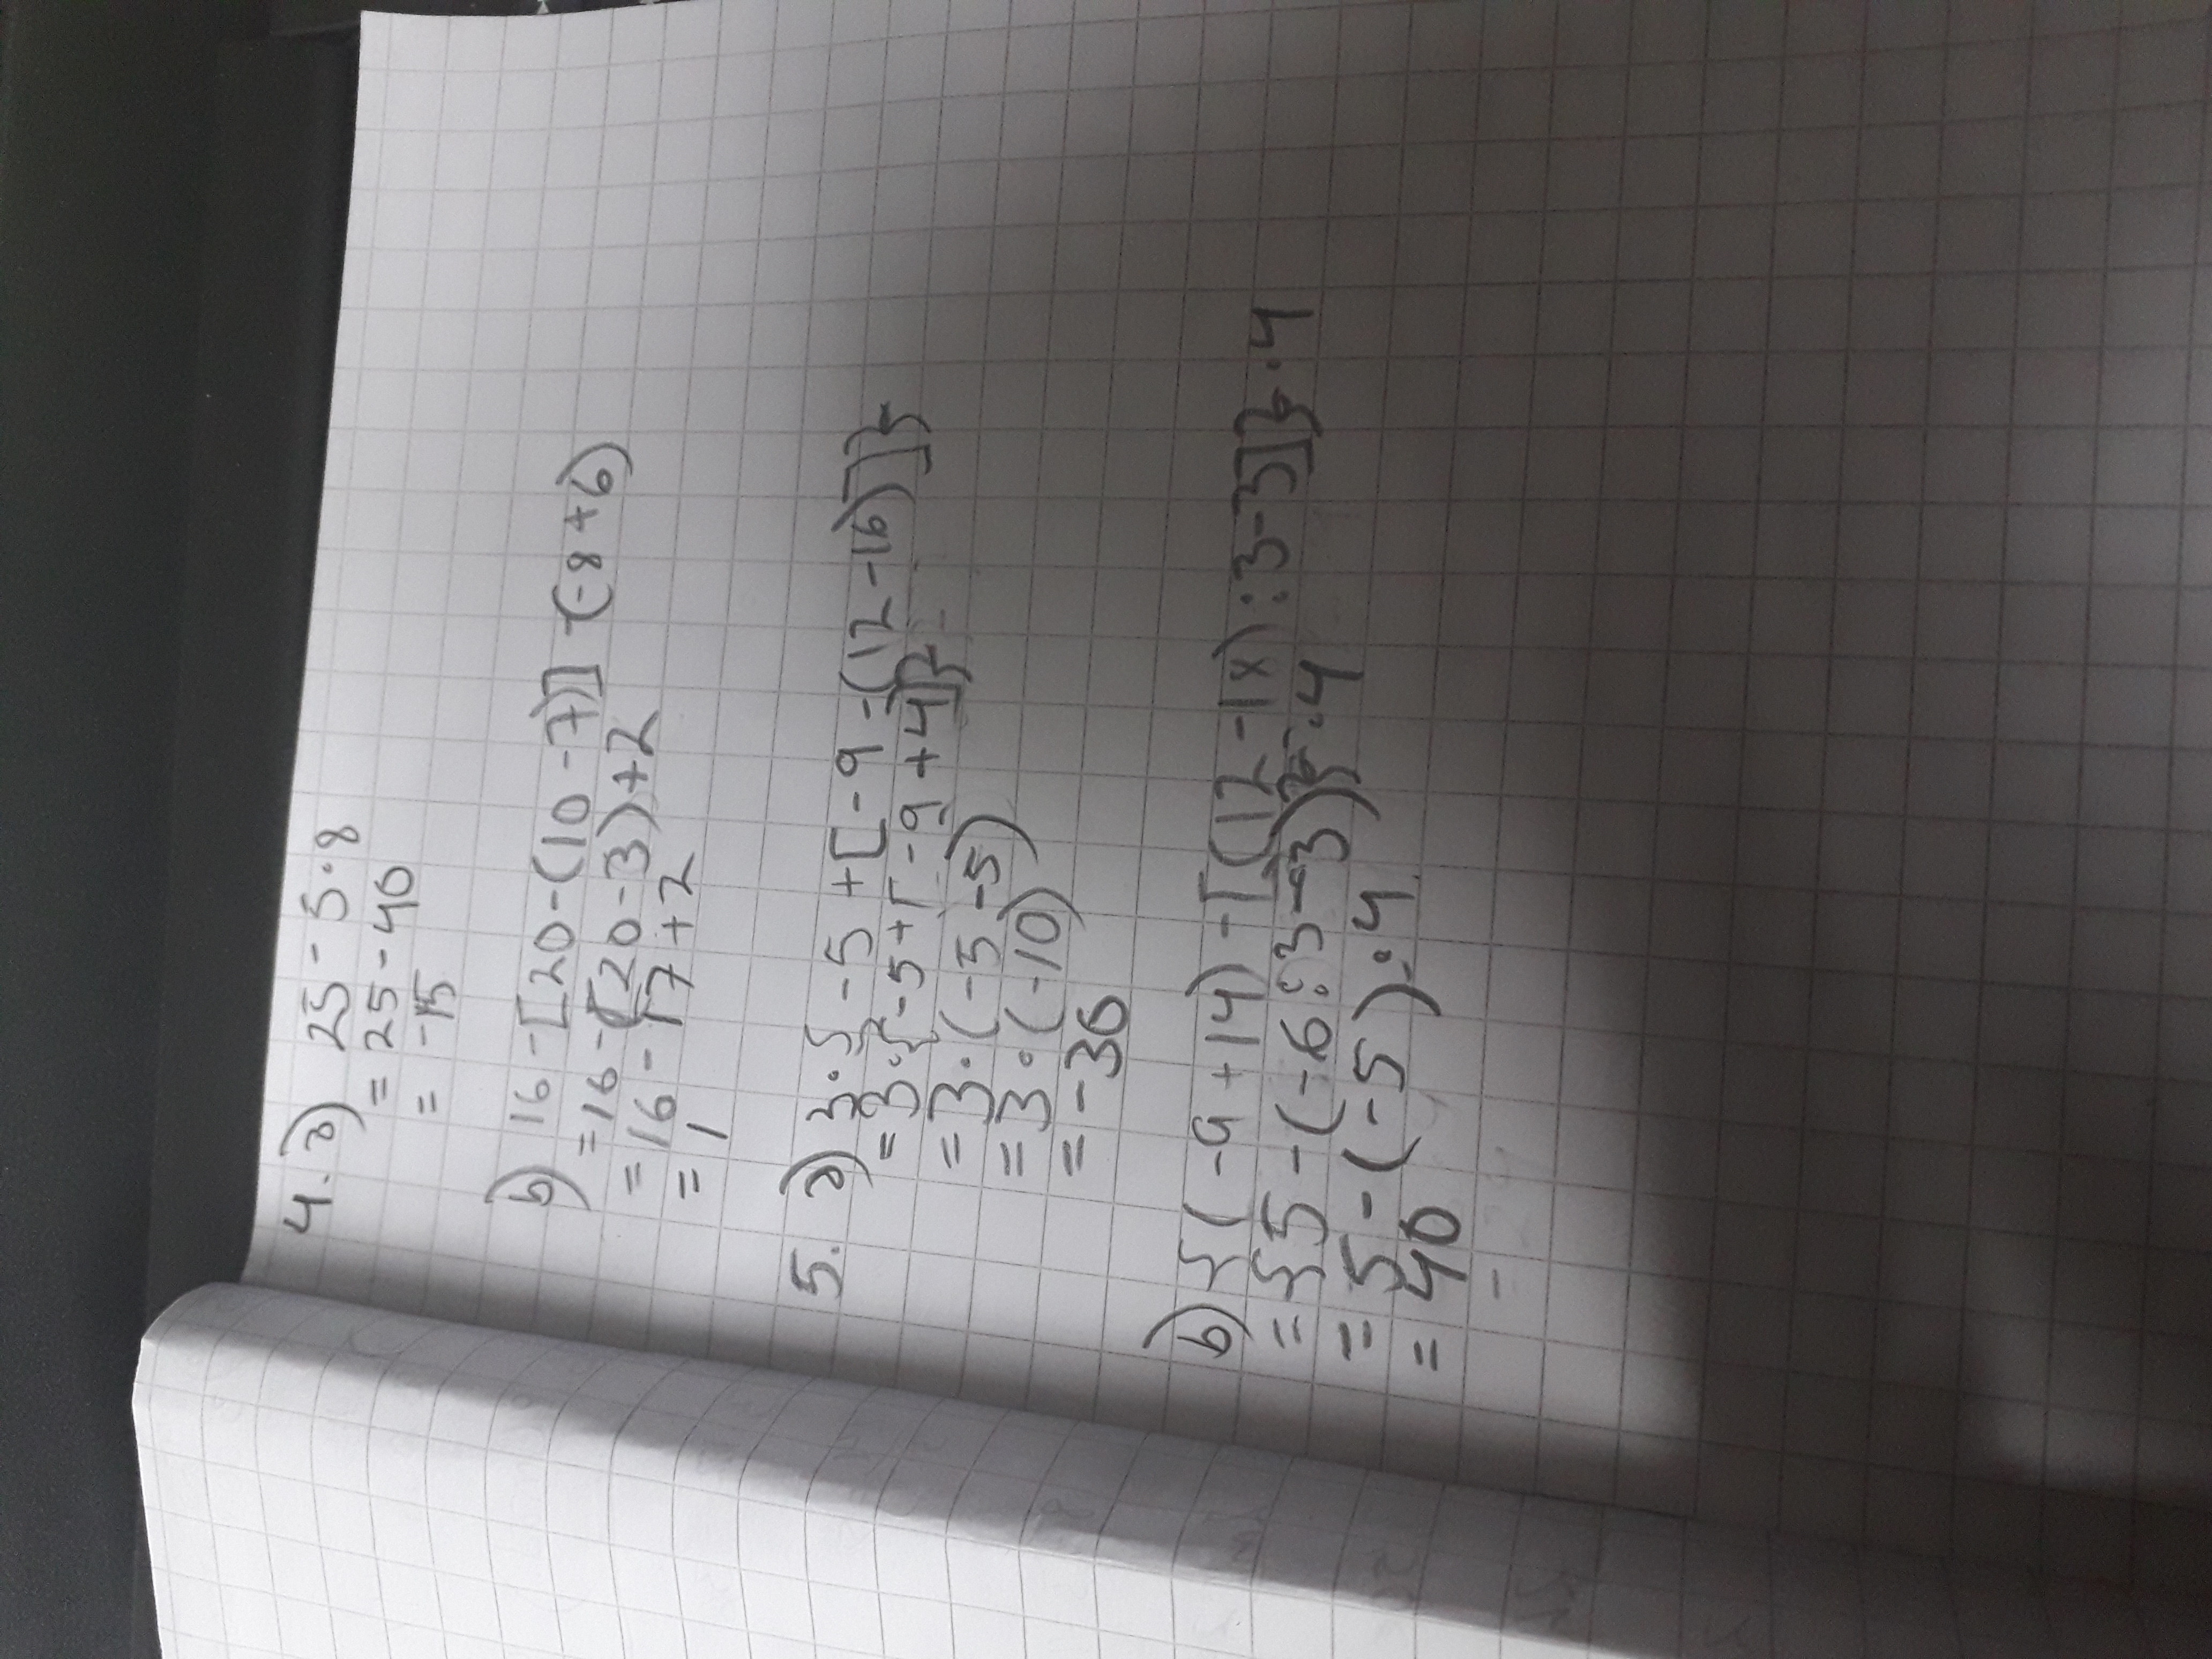 4. a) 25 - 5 · 8
= 25 - 40
= -15
b) 16 - [20 - (10 - 7)] - (-8 + 6)
= 16 - (20 - 3) + 2
= 16 - 17 + 2
= 1
5. a) 3 · { -5 + [ -9 - (12 - 16)]}
= 3 · { -5 + [ -9 + 4]}
= 3 · (-5 -5)
= 3 · (-10)
= -30
b) {(-9 + 14) - [(12 - 18) : 3 - 3]} · 4
= {5 - (-6 : 3 - 3)} · 4
= 5 - (-5) · 4
= 40